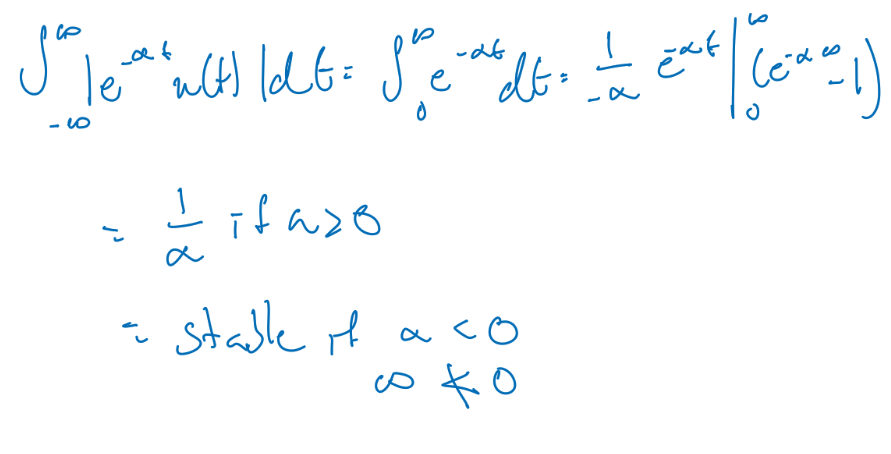 ∫_{-∞}^{∞} |e^{-αt} u(t)| dt = ∫_{0}^{∞} e^{-αt} dt = \frac{1}{-α} e^{-αt} |_{0}^{∞} (e^{-α∞} - 1)
= \frac{1}{α} if a ≥ 0
= stable if α < 0
∞ ≮ 0